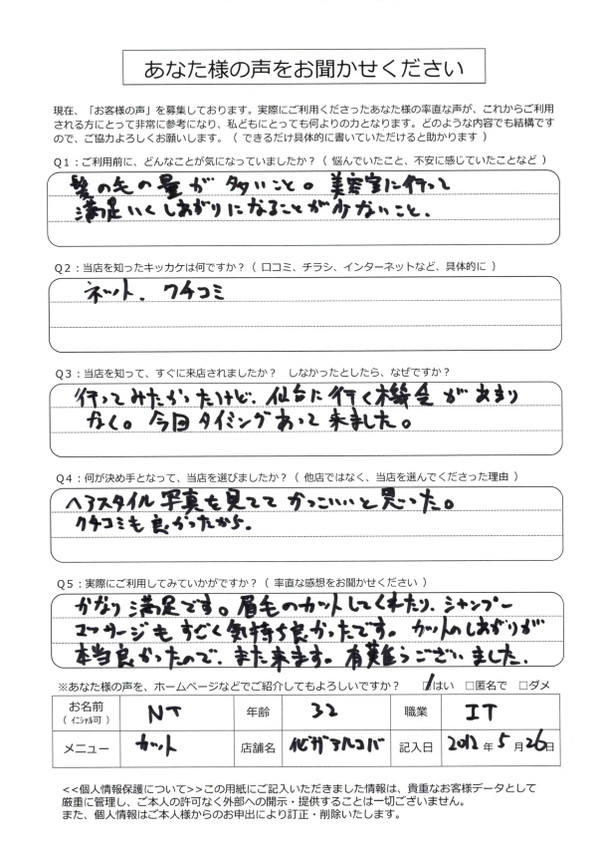 あなた様の声をお聞かせください
現在、「お客様の声」を募集しております。実際にご利用くださったあなた様の率直な声が、これからご利用
される方にとって非常に参考になり、私どもにとっても何よりの力となります。どのような内容でも結構です
ので、ご協力よろしくお願いします。（ できるだけ具体的に書いていただけると助かります ）
Q1：ご利用前に、どんなことが気になっていましたか？（ 悩んでいたこと、不安に感じていたことなど ）
髪の毛の量が多いこと。美容室に行って
満足いくしあがりになることが少ないこと.
Q2：当店を知ったキッカケは何ですか？（ 口コミ、チラシ、インターネットなど、具体的に ）
ネット、クチコミ
Q3：当店を知って、すぐに来店されましたか？ しなかったとしたら、なぜですか？
行ってみたかったけど、仙台に行く機会があまり
なく。今回タイミングあって来ました。
Q4：何が決め手となって、当店を選びましたか？（ 他店ではなく、当店を選んでくださった理由 ）
ヘアスタイル写真も見ててかっこいいと思った。
クチコミも良かったから.
Q5：実際にご利用してみていかがですか？（ 率直な感想をお聞かせください ）
かなり満足です。眉毛のカットしてくれたり、シャンプー
マッサージもすごく気持ち良かったです。カットのしあがりが
本当良かったので、また来ます。有難うございました.
※あなた様の声を、ホームページなどでご紹介してもよろしいですか？ □はい □匿名で □ダメ
お名前（イニシャル可） NT 年齢 32 職業 IT
メニュー カット 店舗名 記入日 2012年5月26日
<<個人情報保護について>>この用紙にご記入いただきました情報は、貴重なお客様データとして
厳重に管理し、ご本人の許可なく外部への開示・提供することは一切ございません。
また、個人情報はご本人様からのお申出により訂正・削除いたします。